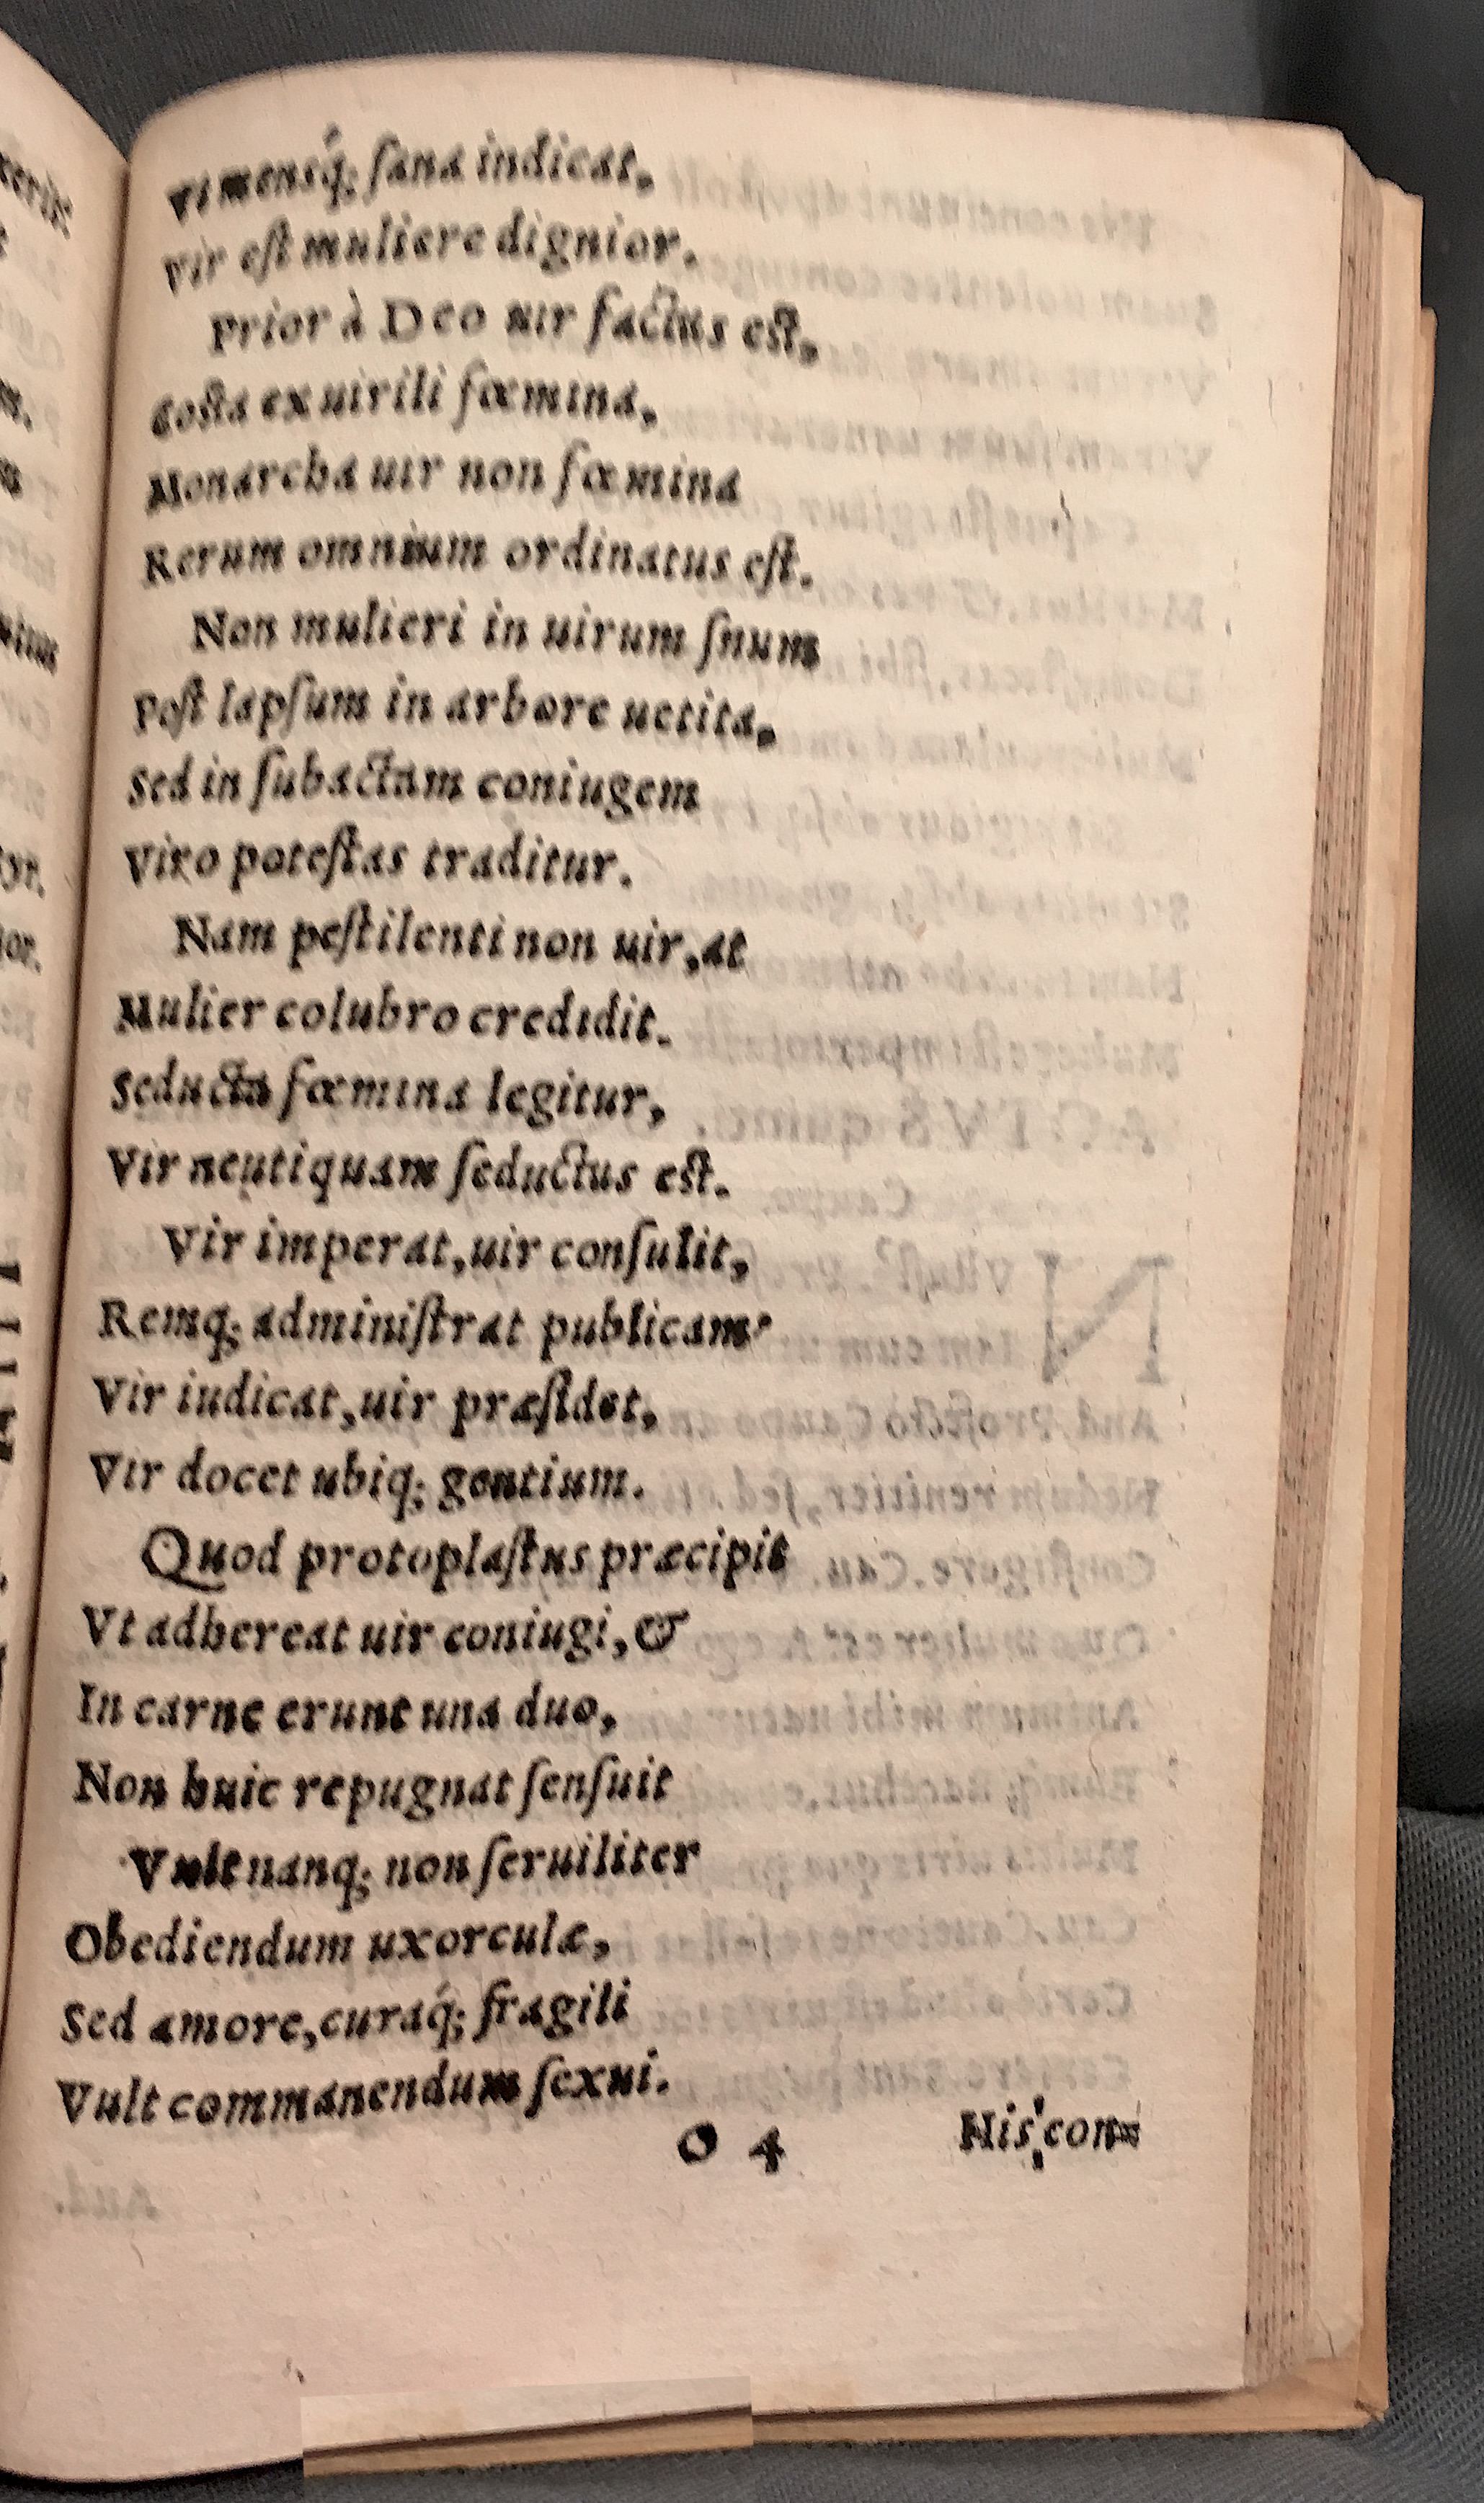 Vt mensq́; ſana indicat,
Vir eſt muliere dignior.
Prior à Deo uir factus eſt,
Coſta ex uirili fœmina,
Monarcha uir non fœmina
Rerum omnium ordinatus eſt.
Non mulieri in uirum ſnum
Poſt lapſum in arbore uetita,
Sed in ſubactam coniugem
Viro poteſtas traditur.
Nam peſtilenti non uir, at
Mulier colubro credidit.
Seducta fœmina legitur,
Vir neutiquam ſeductus eſt.
Vir imperat, uir conſulit,
Remq; adminiſtrat publicam,
Vir iudicat, uir præſidet,
Vir docet ubiq; gentium.
Quod protoplaſtus præcipit
Vt adhereat uir coniugi, &
In carne erunt una duo,
Non huic repugnat ſenſuit
Vult nanq; non ſeruiliter
Obediendum uxorculæ,
Sed amore, curaq́; fragili
Vult commanendum ſexui.
O 4 His con=